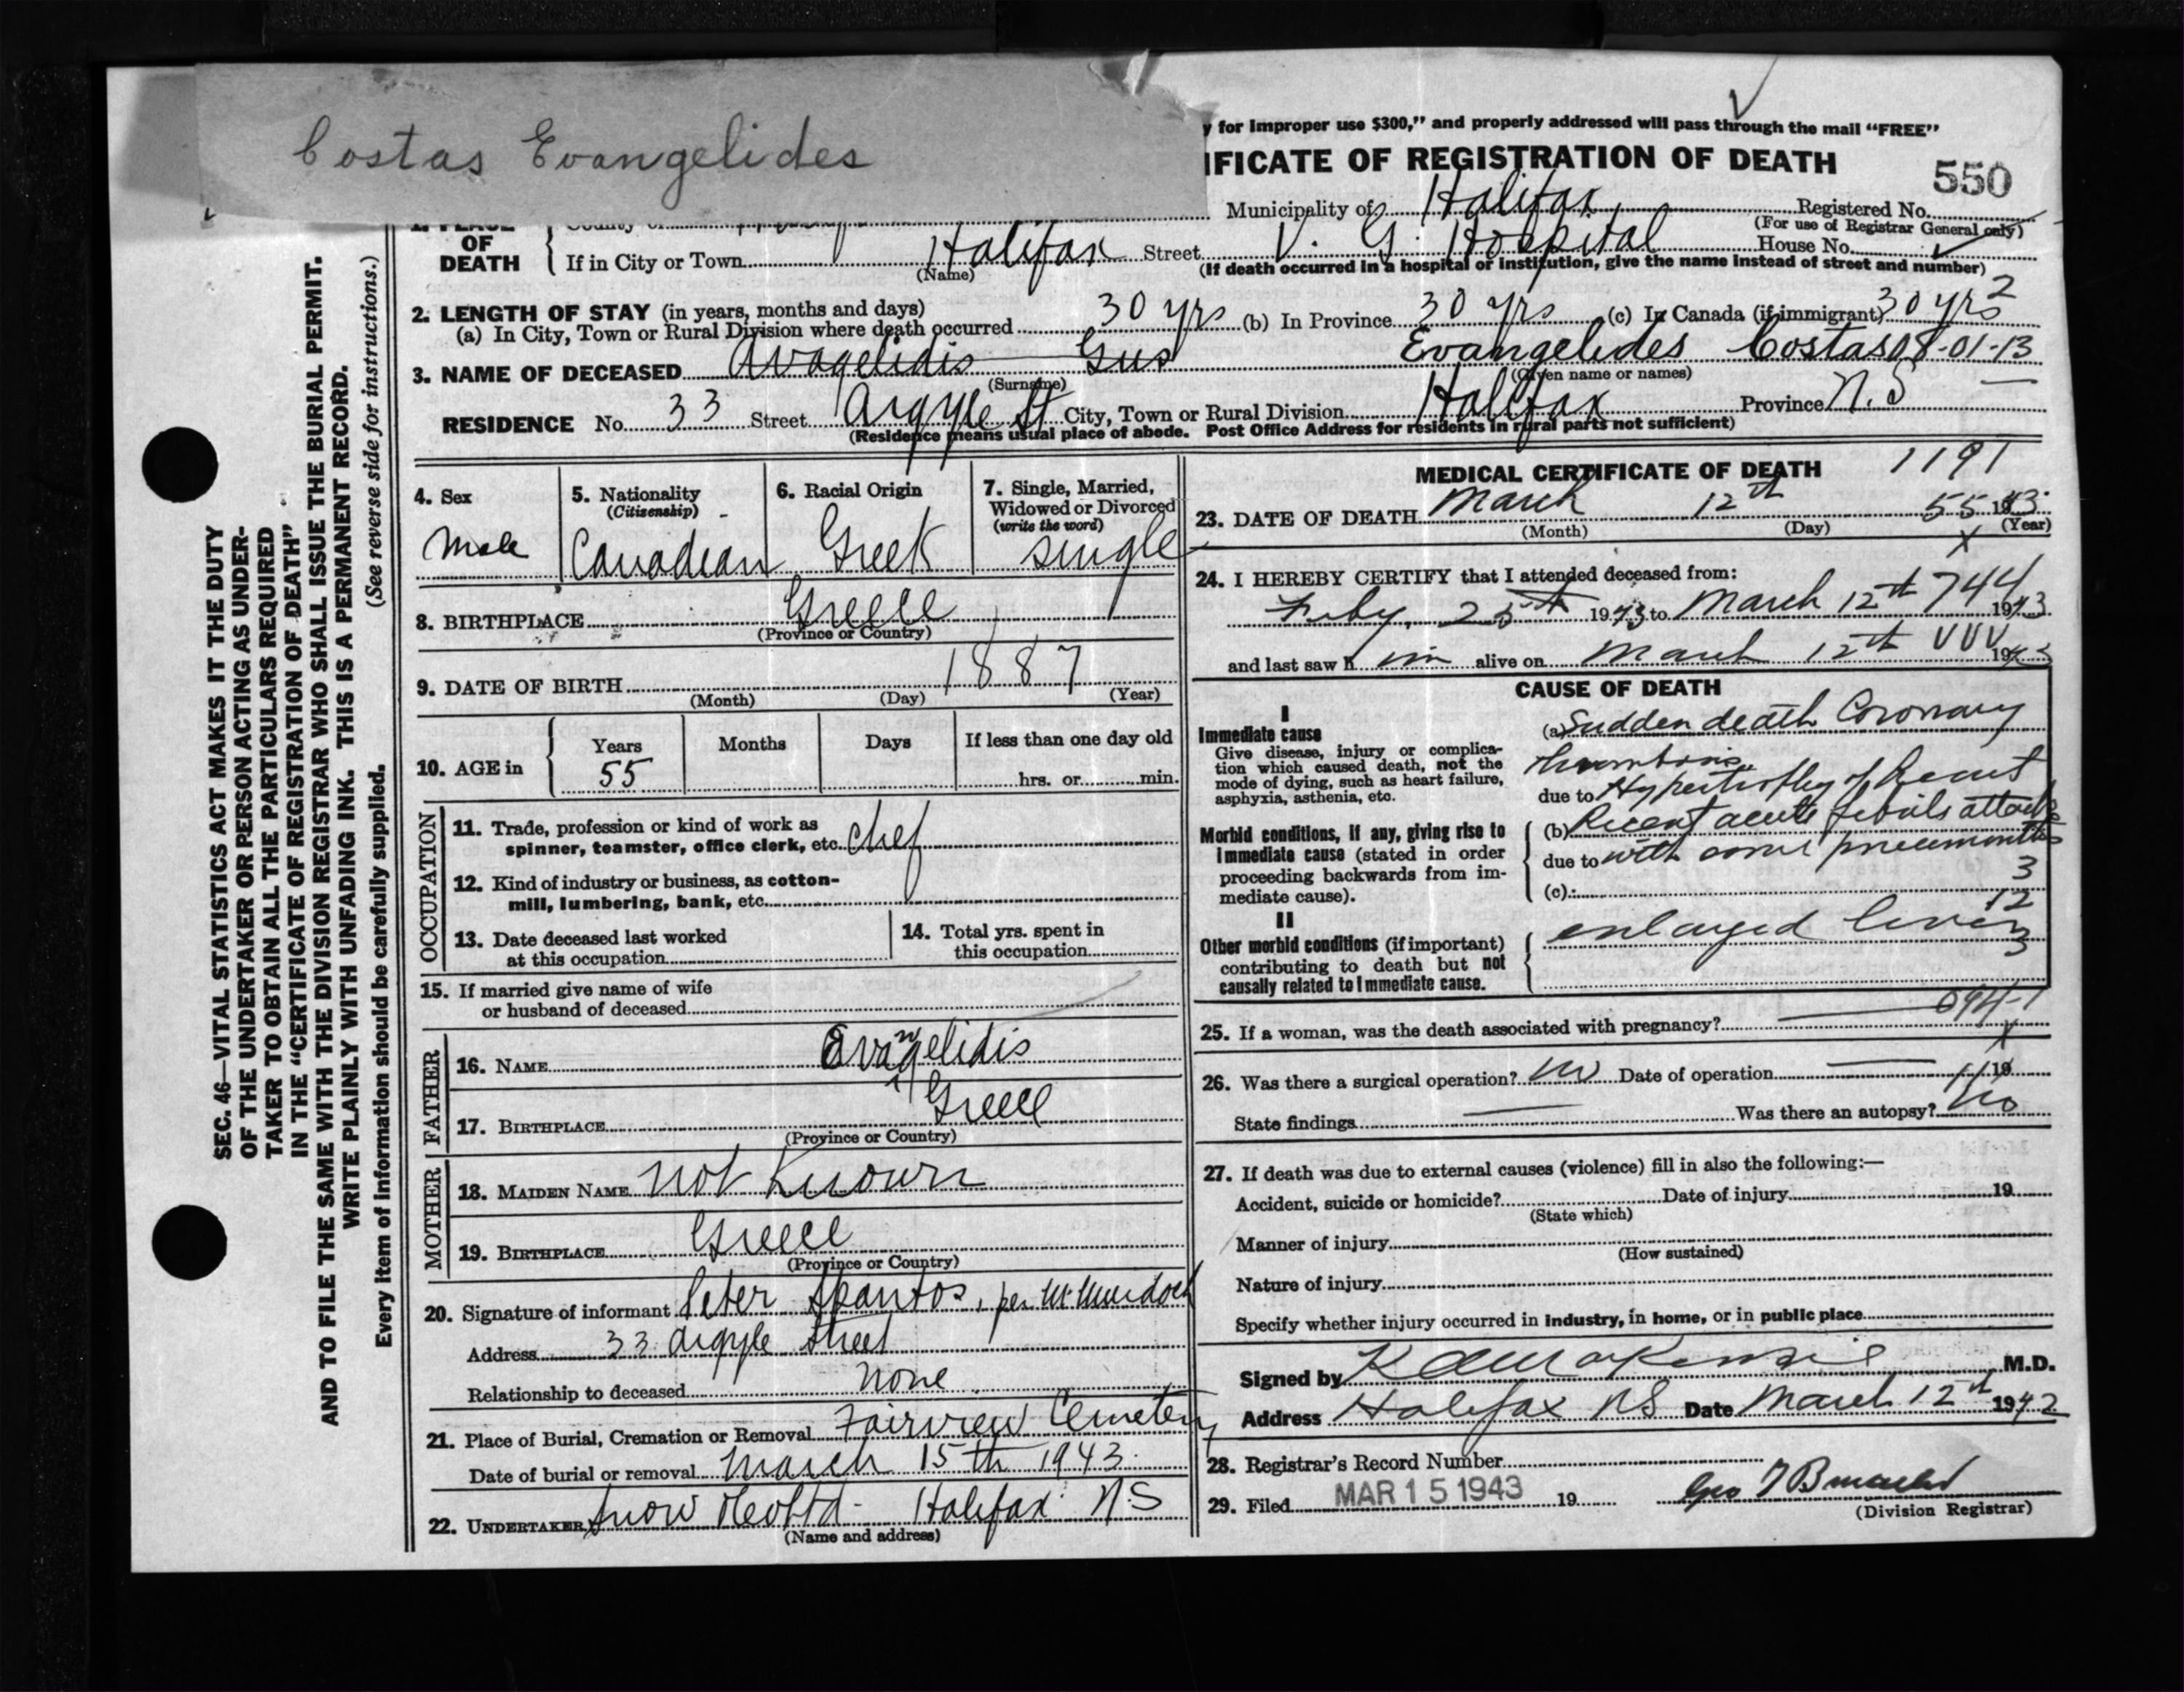 Costas Evangelides
y for Improper use $300," and properly addressed will pass through the mail "FREE"
IFICATE OF REGISTRATION OF DEATH
550
Municipality of Halifax Registered No.
(For use of Registrar General only)
OF DEATH
If in City or Town Halifax Street V. G. Hospital House No.
(Name) (If death occurred in a hospital or institution, give the name instead of street and number)
2. LENGTH OF STAY (in years, months and days)
(a) In City, Town or Rural Division where death occurred 30 yrs (b) In Province 30 yrs (c) In Canada (if immigrant) 30 yrs 2
3. NAME OF DECEASED Avagelidis Gus Evangelides Costas 08-01-13
(Surname) (Given name or names)
RESIDENCE No. 33 Street Argyle St City, Town or Rural Division Halifax Province N.S
(Residence means usual place of abode. Post Office Address for residents in rural parts not sufficient)
4. Sex
Male
5. Nationality
(Citizenship)
Canadian
6. Racial Origin
Greek
7. Single, Married, Widowed or Divorced
(write the word)
Single
8. BIRTHPLACE Greece
(Province or Country)
9. DATE OF BIRTH 1887
(Month) (Day) (Year)
10. AGE in Years Months Days If less than one day old
55 hrs. or min.
OCCUPATION
11. Trade, profession or kind of work as
spinner, teamster, office clerk, etc. Chef
12. Kind of industry or business, as cotton-
mill, lumbering, bank, etc.
13. Date deceased last worked
at this occupation
14. Total yrs. spent in
this occupation
15. If married give name of wife
or husband of deceased
FATHER
16. NAME Evangelidis
17. BIRTHPLACE Greece
(Province or Country)
MOTHER
18. MAIDEN NAME not Known
19. BIRTHPLACE Greece
(Province or Country)
20. Signature of informant Peter Spantos, per W. Murdock
Address 33 Argyle Street
Relationship to deceased None
21. Place of Burial, Cremation or Removal Fairview Cemetery
Date of burial or removal March 15th 1943.
22. UNDERTAKER Snow & Co Ltd - Halifax N.S
(Name and address)
MEDICAL CERTIFICATE OF DEATH 1191
23. DATE OF DEATH March 12th 55 1943
(Month) (Day) (Year)
X
24. I HEREBY CERTIFY that I attended deceased from:
Feby. 25th 1943 to March 12th 744 1943
and last saw him alive on March 12th VUV 1943
CAUSE OF DEATH
I
Immediate cause
Give disease, injury or complica-
tion which caused death, not the
mode of dying, such as heart failure,
asphyxia, asthenia, etc.
(a) Sudden death Coronary
thrombosis
due to Hypertrophy of heart
Morbid conditions, if any, giving rise to
immediate cause (stated in order
proceeding backwards from im-
mediate cause).
(b) Recent acute febrile attack
due to with some pneumonitis
(c) 3
12
II
Other morbid conditions (if important)
contributing to death but not
causally related to immediate cause.
enlarged liver
3
094-1
25. If a woman, was the death associated with pregnancy?
X
26. Was there a surgical operation? no Date of operation 19
State findings Was there an autopsy? No
27. If death was due to external causes (violence) fill in also the following:—
Accident, suicide or homicide? Date of injury 19
(State which)
Manner of injury
(How sustained)
Nature of injury
Specify whether injury occurred in industry, in home, or in public place
Signed by K A MacKenzie M.D.
Address Halifax NS Date March 12th 1942
28. Registrar's Record Number
29. Filed MAR 15 1943 19
(Division Registrar)
SEC. 46—VITAL STATISTICS ACT MAKES IT THE DUTY
OF THE UNDERTAKER OR PERSON ACTING AS UNDER-
TAKER TO OBTAIN ALL THE PARTICULARS REQUIRED
IN THE "CERTIFICATE OF REGISTRATION OF DEATH"
AND TO FILE THE SAME WITH THE DIVISION REGISTRAR WHO SHALL ISSUE THE BURIAL PERMIT.
WRITE PLAINLY WITH UNFADING INK. THIS IS A PERMANENT RECORD.
Every item of information should be carefully supplied. (See reverse side for instructions.)